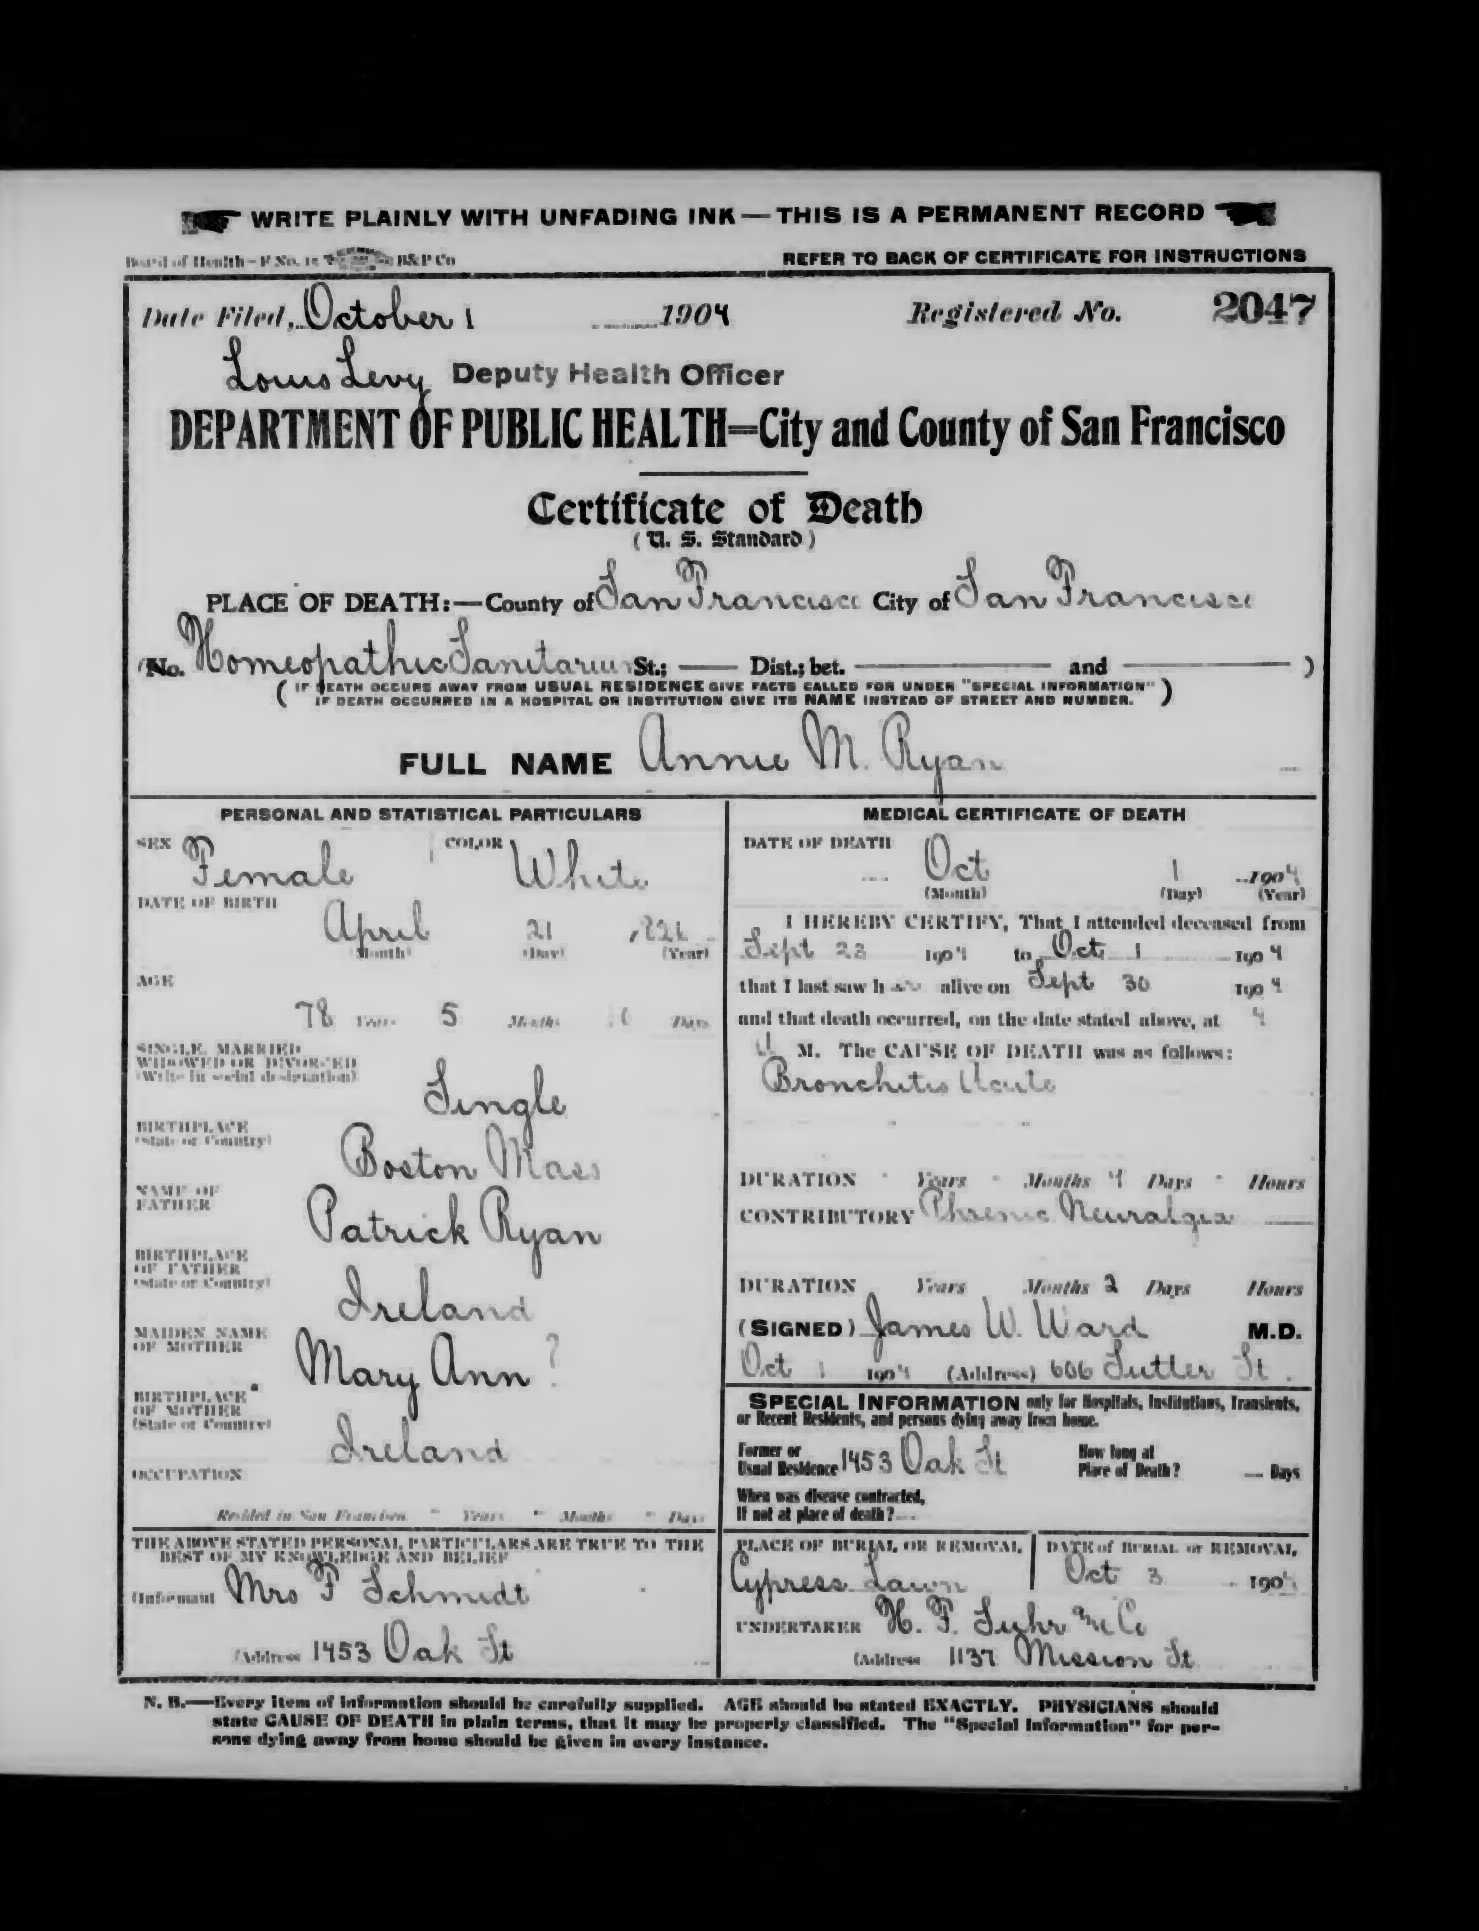 WRITE PLAINLY WITH UNFADING INK — THIS IS A PERMANENT RECORD
Board of Health—F. No. 15 B&P Co
REFER TO BACK OF CERTIFICATE FOR INSTRUCTIONS
Date Filed, October 1 1904 Registered No. 2047
Louis Levy Deputy Health Officer
DEPARTMENT OF PUBLIC HEALTH=City and County of San Francisco
Certificate of Death
( U. S. Standard )
PLACE OF DEATH:—County of San Francisco City of San Francisco
(No. Homeopathic Sanitarium St.; — Dist.; bet. — and — )
( IF DEATH OCCURS AWAY FROM USUAL RESIDENCE GIVE FACTS CALLED FOR UNDER "SPECIAL INFORMATION" )
IF DEATH OCCURRED IN A HOSPITAL OR INSTITUTION GIVE ITS NAME INSTEAD OF STREET AND NUMBER.
FULL NAME Annie M. Ryan
PERSONAL AND STATISTICAL PARTICULARS
SEX Female COLOR White
DATE OF BIRTH
April 21 1826
(Month) (Day) (Year)
AGE
78 Years 5 Months 10 Days
SINGLE, MARRIED
WIDOWED OR DIVORCED
(Write in social designation)
Single
BIRTHPLACE
(State or Country)
Boston Mass
NAME OF
FATHER
Patrick Ryan
BIRTHPLACE
OF FATHER
(State or Country)
Ireland
MAIDEN NAME
OF MOTHER
Mary Ann ?
BIRTHPLACE
OF MOTHER
(State or Country)
Ireland
OCCUPATION
Resided in San Francisco " Years " Months " Days
THE ABOVE STATED PERSONAL PARTICULARS ARE TRUE TO THE
BEST OF MY KNOWLEDGE AND BELIEF
(Informant Mrs F Schmidt
(Address 1453 Oak St
MEDICAL CERTIFICATE OF DEATH
DATE OF DEATH
Oct 1 1904
(Month) (Day) (Year)
I HEREBY CERTIFY, That I attended deceased from
Sept 23 1904 to Oct 1 1904
that I last saw her alive on Sept 30 1904
and that death occurred, on the date stated above, at 4
a M. The CAUSE OF DEATH was as follows:
Bronchitis Acute
DURATION - Years - Months 4 Days - Hours
CONTRIBUTORY Phrenic Neuralgia
DURATION Years Months 2 Days Hours
(SIGNED) James W. Ward M.D.
Oct 1 1904 (Address) 606 Sutter St.
SPECIAL INFORMATION only for Hospitals, Institutions, Transients,
or Recent Residents, and persons dying away from home.
Former or
Usual Residence 1453 Oak St
How long at
Place of Death? — Days
When was disease contracted,
If not at place of death?
PLACE OF BURIAL OR REMOVAL
Cypress Lawn
DATE of BURIAL or REMOVAL
Oct 3 1904
UNDERTAKER H. F. Suhr & Co
(Address 1137 Mission St
N. B.—Every item of information should be carefully supplied. AGE should be stated EXACTLY. PHYSICIANS should
state CAUSE OF DEATH in plain terms, that it may be properly classified. The "Special Information" for per-
sons dying away from home should be given in every instance.